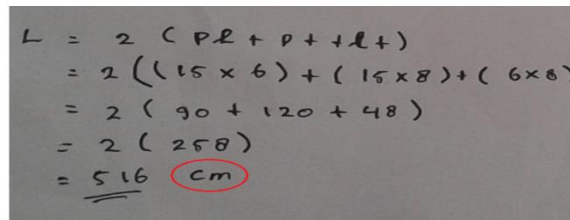 L = 2 ( pl + pt + lt )
= 2 ( ( 15 x 6 ) + ( 15 x 8 ) + ( 6 x 8 )
= 2 ( 90 + 120 + 48 )
= 2 ( 258 )
= 516 cm